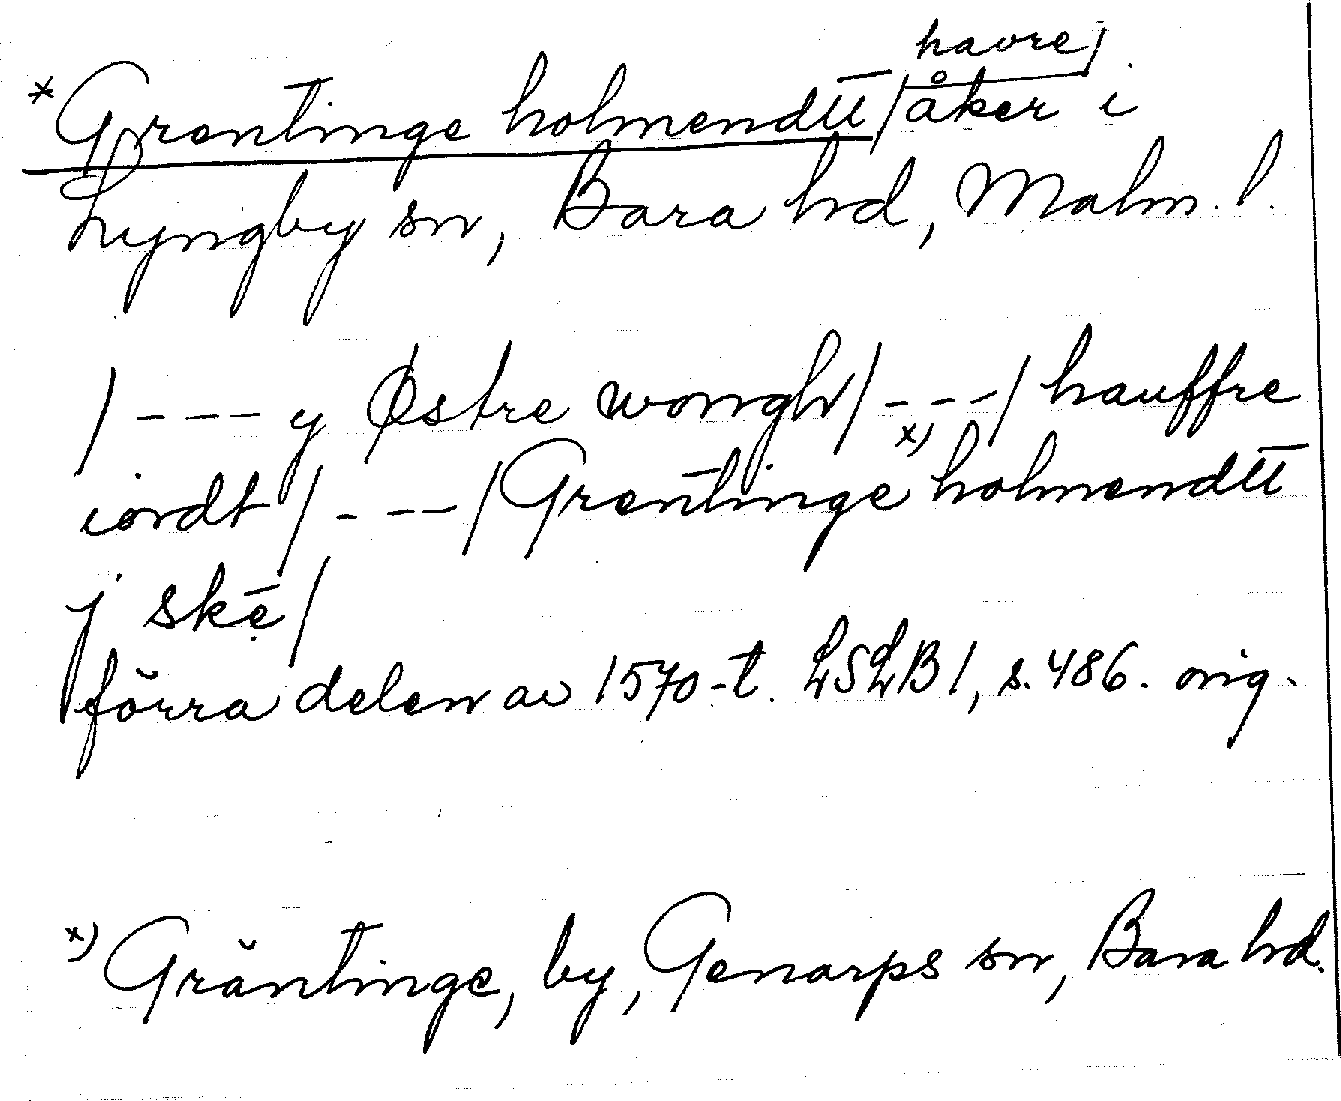 havre/
*Grentinge holmendtt / åker i
Lyngby sn, Bara hd, Malm. l.
/ --- y Østre wongh / --- / hauffre
iordt / --- / Grentinge x) holmendtt
j skē /
förra delen av 1570-t. LSLB 1, s. 486. orig.
x) Gräntinge, by, Genarps sn, Bara hd.